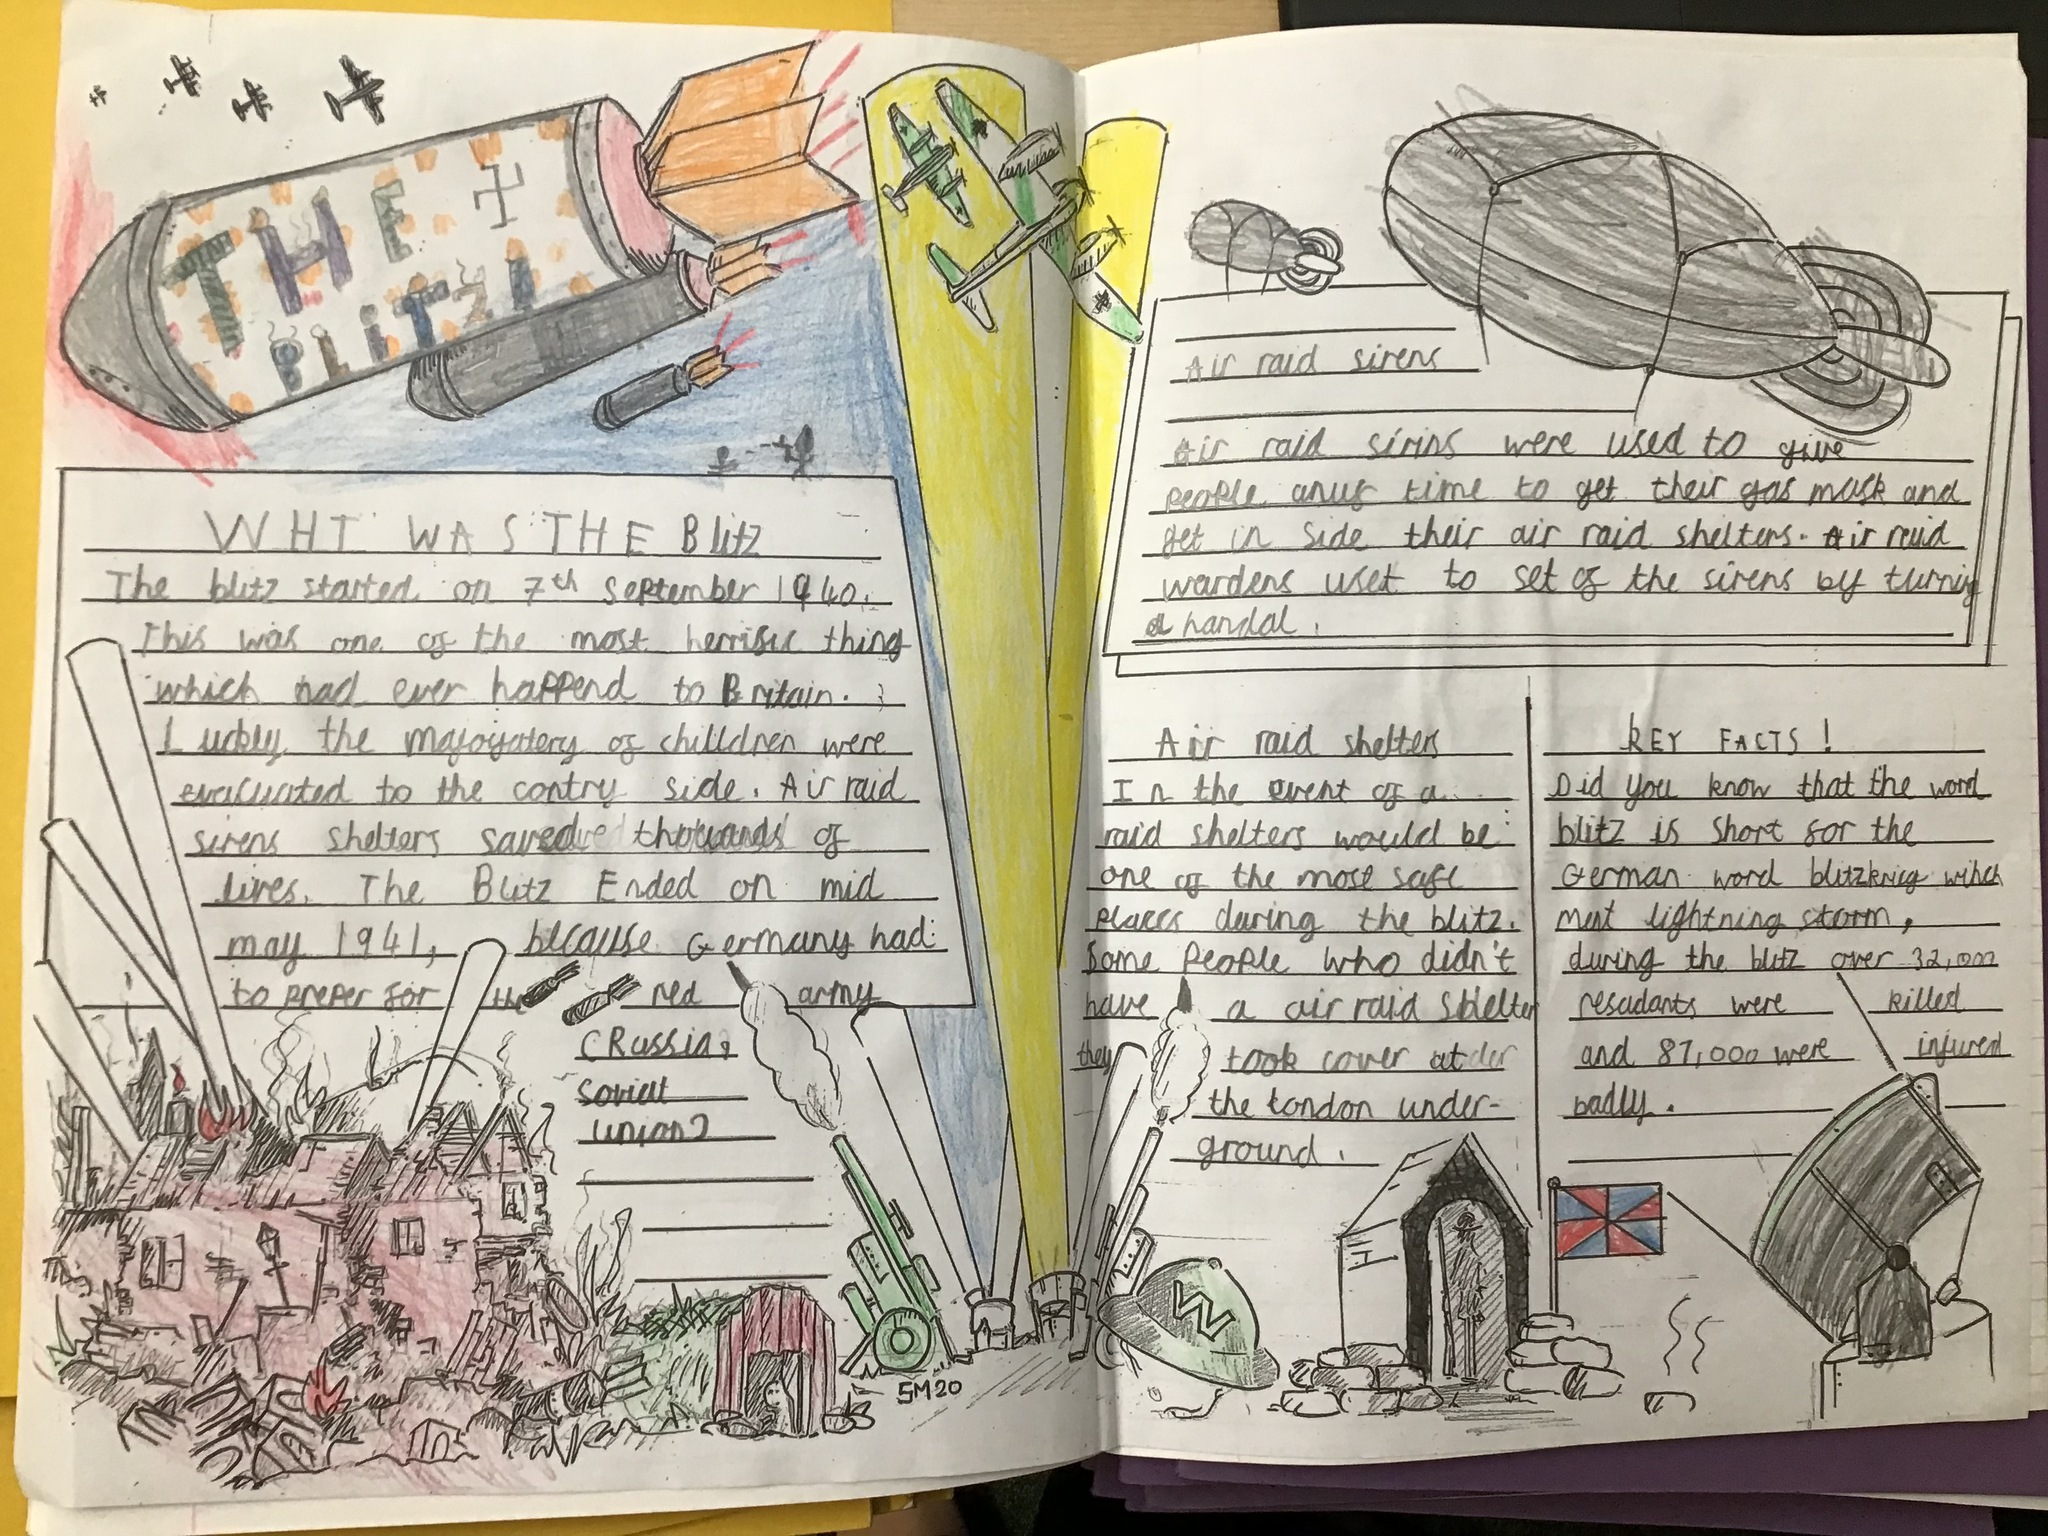 THE
BLITZ!
WHT WAS THE Blitz
The blitz started on 7th September 1940.
This was one of the most herrific thing
which had ever happend to Britain.
Luckly the majoyatery of chilldren were
evacuated to the contry side. Air raid
sirens shelters saved thousands of
lives. The Blitz Ended on mid
may 1941, because Germany had
to preper for the red army
(Russia,
Soviet
union)
5M20
Air raid sirens
Air raid sirins were used to give
people time to get their gas mask and
get in side their air raid shelters. Air raid
wardens uset to set of the sirens by turning
a handal.
Air raid shelters
In the event of a
raid shelters would be
one of the most safe
places during the blitz.
Some People who didn't
have a air raid Shelter
they took cover at
the London under-
ground.
KEY FACTS!
Did you know that the word
blitz is short for the
German word blitzkrieg wihch
ment lightning storm,
during the blitz over 32,000
resadants were killed
and 87,000 were injured
badly.
W